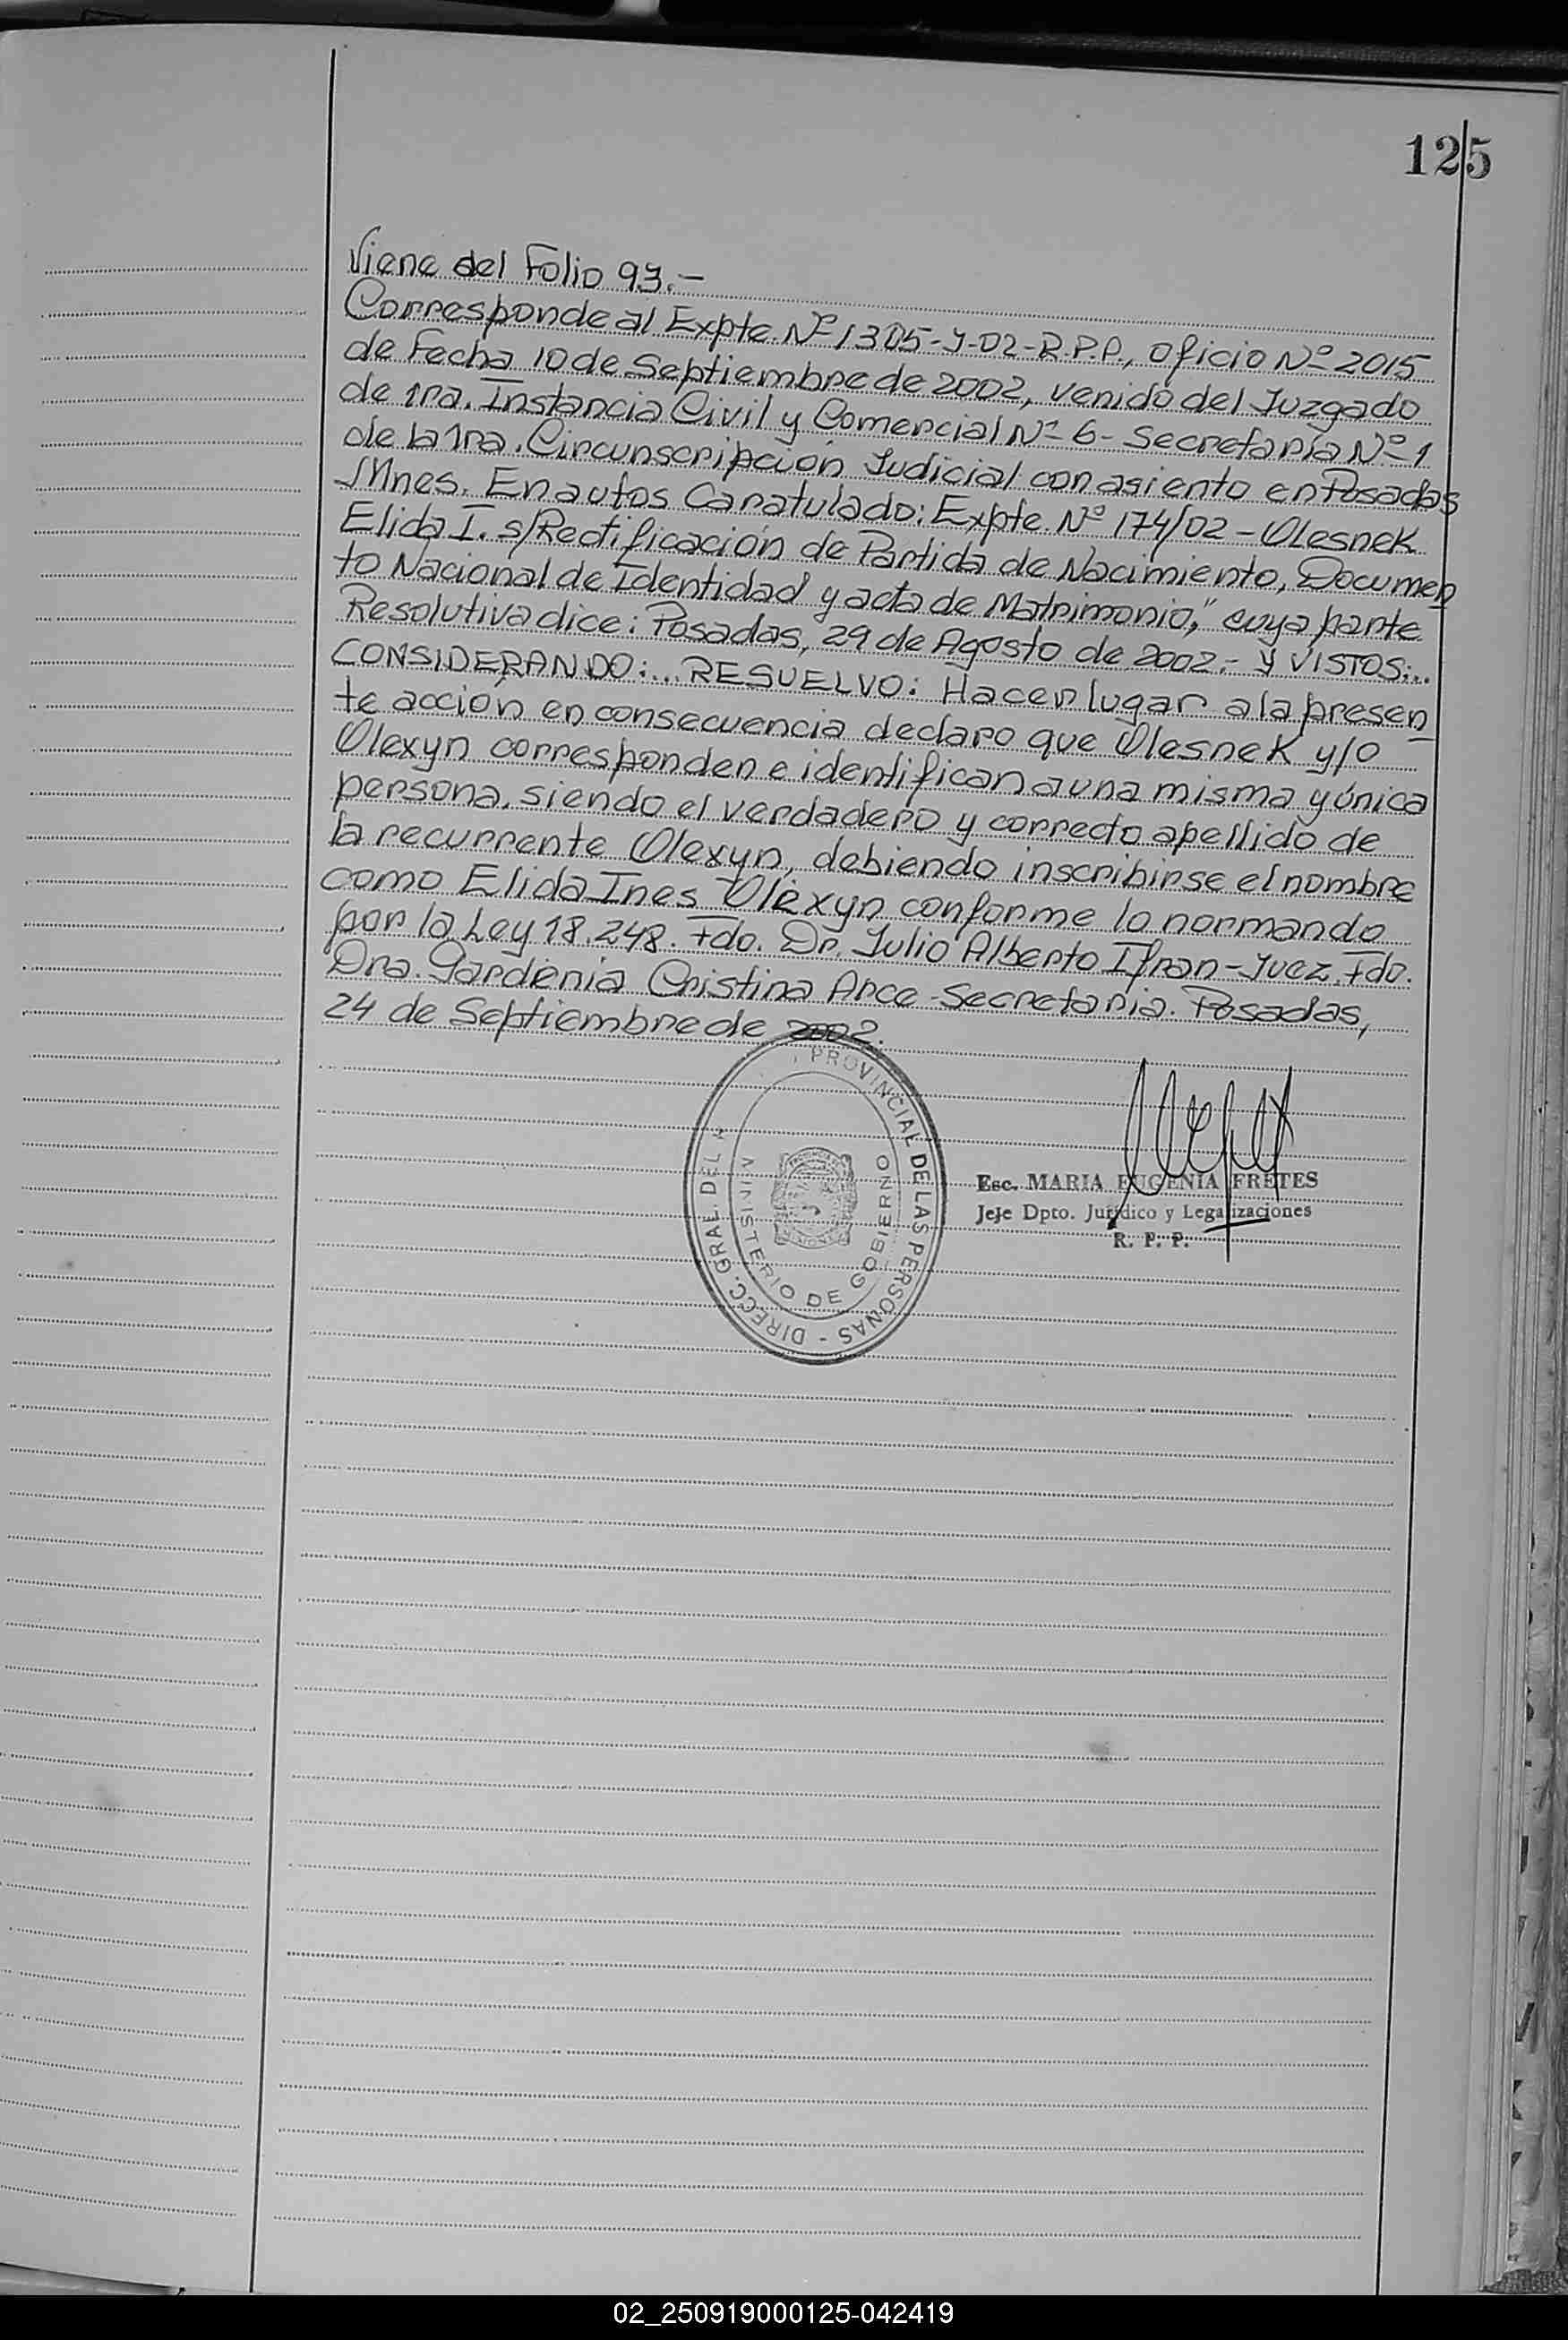 125
Viene del Folio 93.-
Corresponde al Expte. Nº 1305-J-02-R.P.P., Oficio Nº 2015
de Fecha 10 de Septiembre de 2002, venido del Juzgado
de 1ra. Instancia Civil y Comercial Nº 6 - Secretaría Nº 1
de la 1ra. Circunscripción Judicial con asiento en Posadas
Mnes. En autos Caratulado: Expte. Nº 174/02 - Olesnek
Elida I. s/Rectificación de Partida de Nacimiento, Documen
to Nacional de Identidad y acta de Matrimonio," cuya parte
Resolutiva dice: Posadas, 29 de Agosto de 2002.- Y VISTOS:...
CONSIDERANDO:... RESUELVO: Hacer lugar a la presen
te acción en consecuencia declaro que Olesnek y/o
Olexyn corresponden e identifican a una misma y única
persona, siendo el verdadero y correcto apellido de
la recurrente Olexyn, debiendo inscribirse el nombre
como Elida Ines Olexyn conforme lo normando
por la Ley 18.248. Fdo. Dr. Julio Alberto Ifran - Juez. Fdo.
Dra. Gardenia Cristina Arce - Secretaria. Posadas,
24 de Septiembre de 2002.
DIRECC. GRAL. DEL PROVINCIAL DE LAS PERSONAS -
MINISTERIO DE GOBIERNO
Esc. MARIA EUGENIA FRETES
Jeje Dpto. Jurídico y Legalizaciones
R. P. P.
02_250919000125-042419